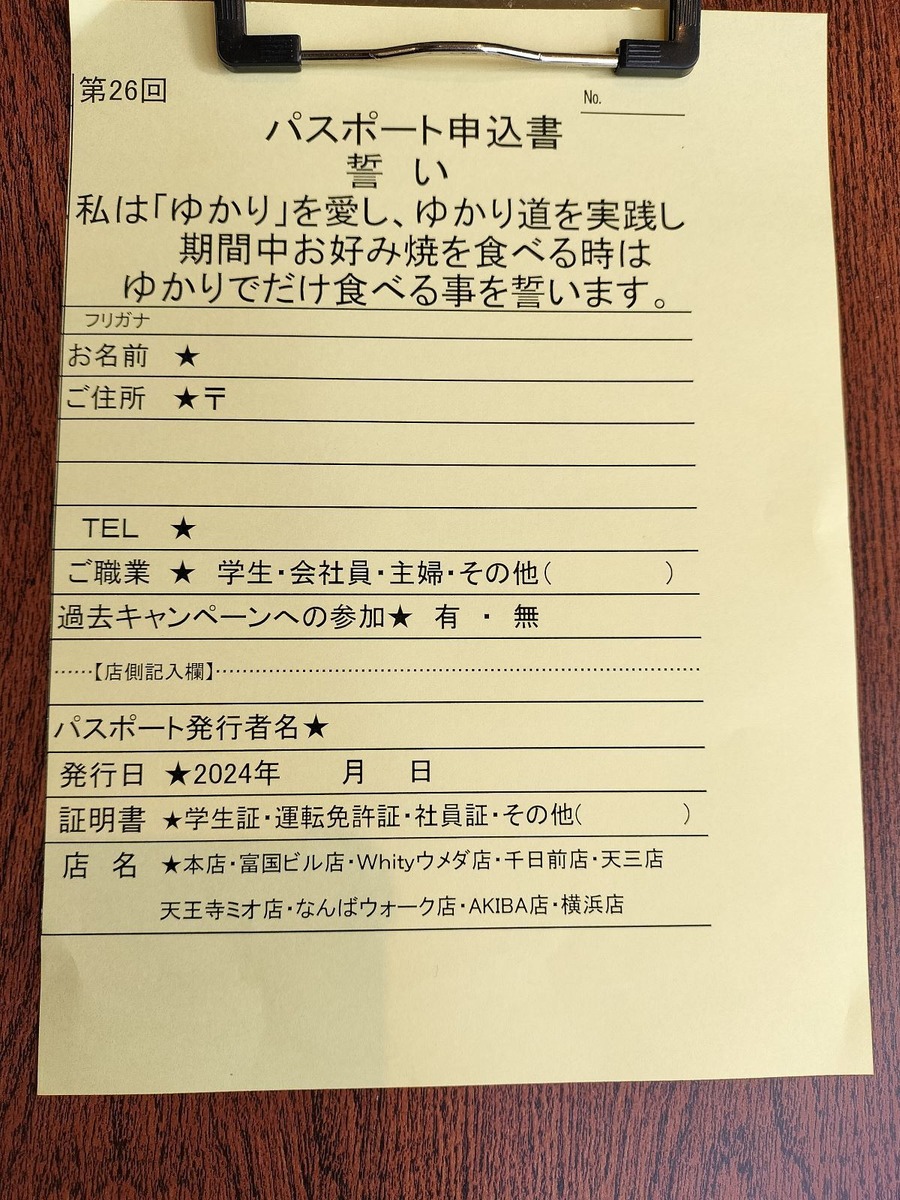 第26回
No.
パスポート申込書
誓 い
私は「ゆかり」を愛し、ゆかり道を実践し
期間中お好み焼を食べる時は
ゆかりでだけ食べる事を誓います。
フリガナ
お名前 ★
ご住所 ★〒
TEL ★
ご職業 ★ 学生・会社員・主婦・その他( )
過去キャンペーンへの参加★ 有 ・ 無
……【店側記入欄】……………………………………………
パスポート発行者名★
発行日 ★2024年 月 日
証明書 ★学生証・運転免許証・社員証・その他( )
店 名 ★本店・富国ビル店・Whityウメダ店・千日前店・天三店
天王寺ミオ店・なんばウォーク店・AKIBA店・横浜店